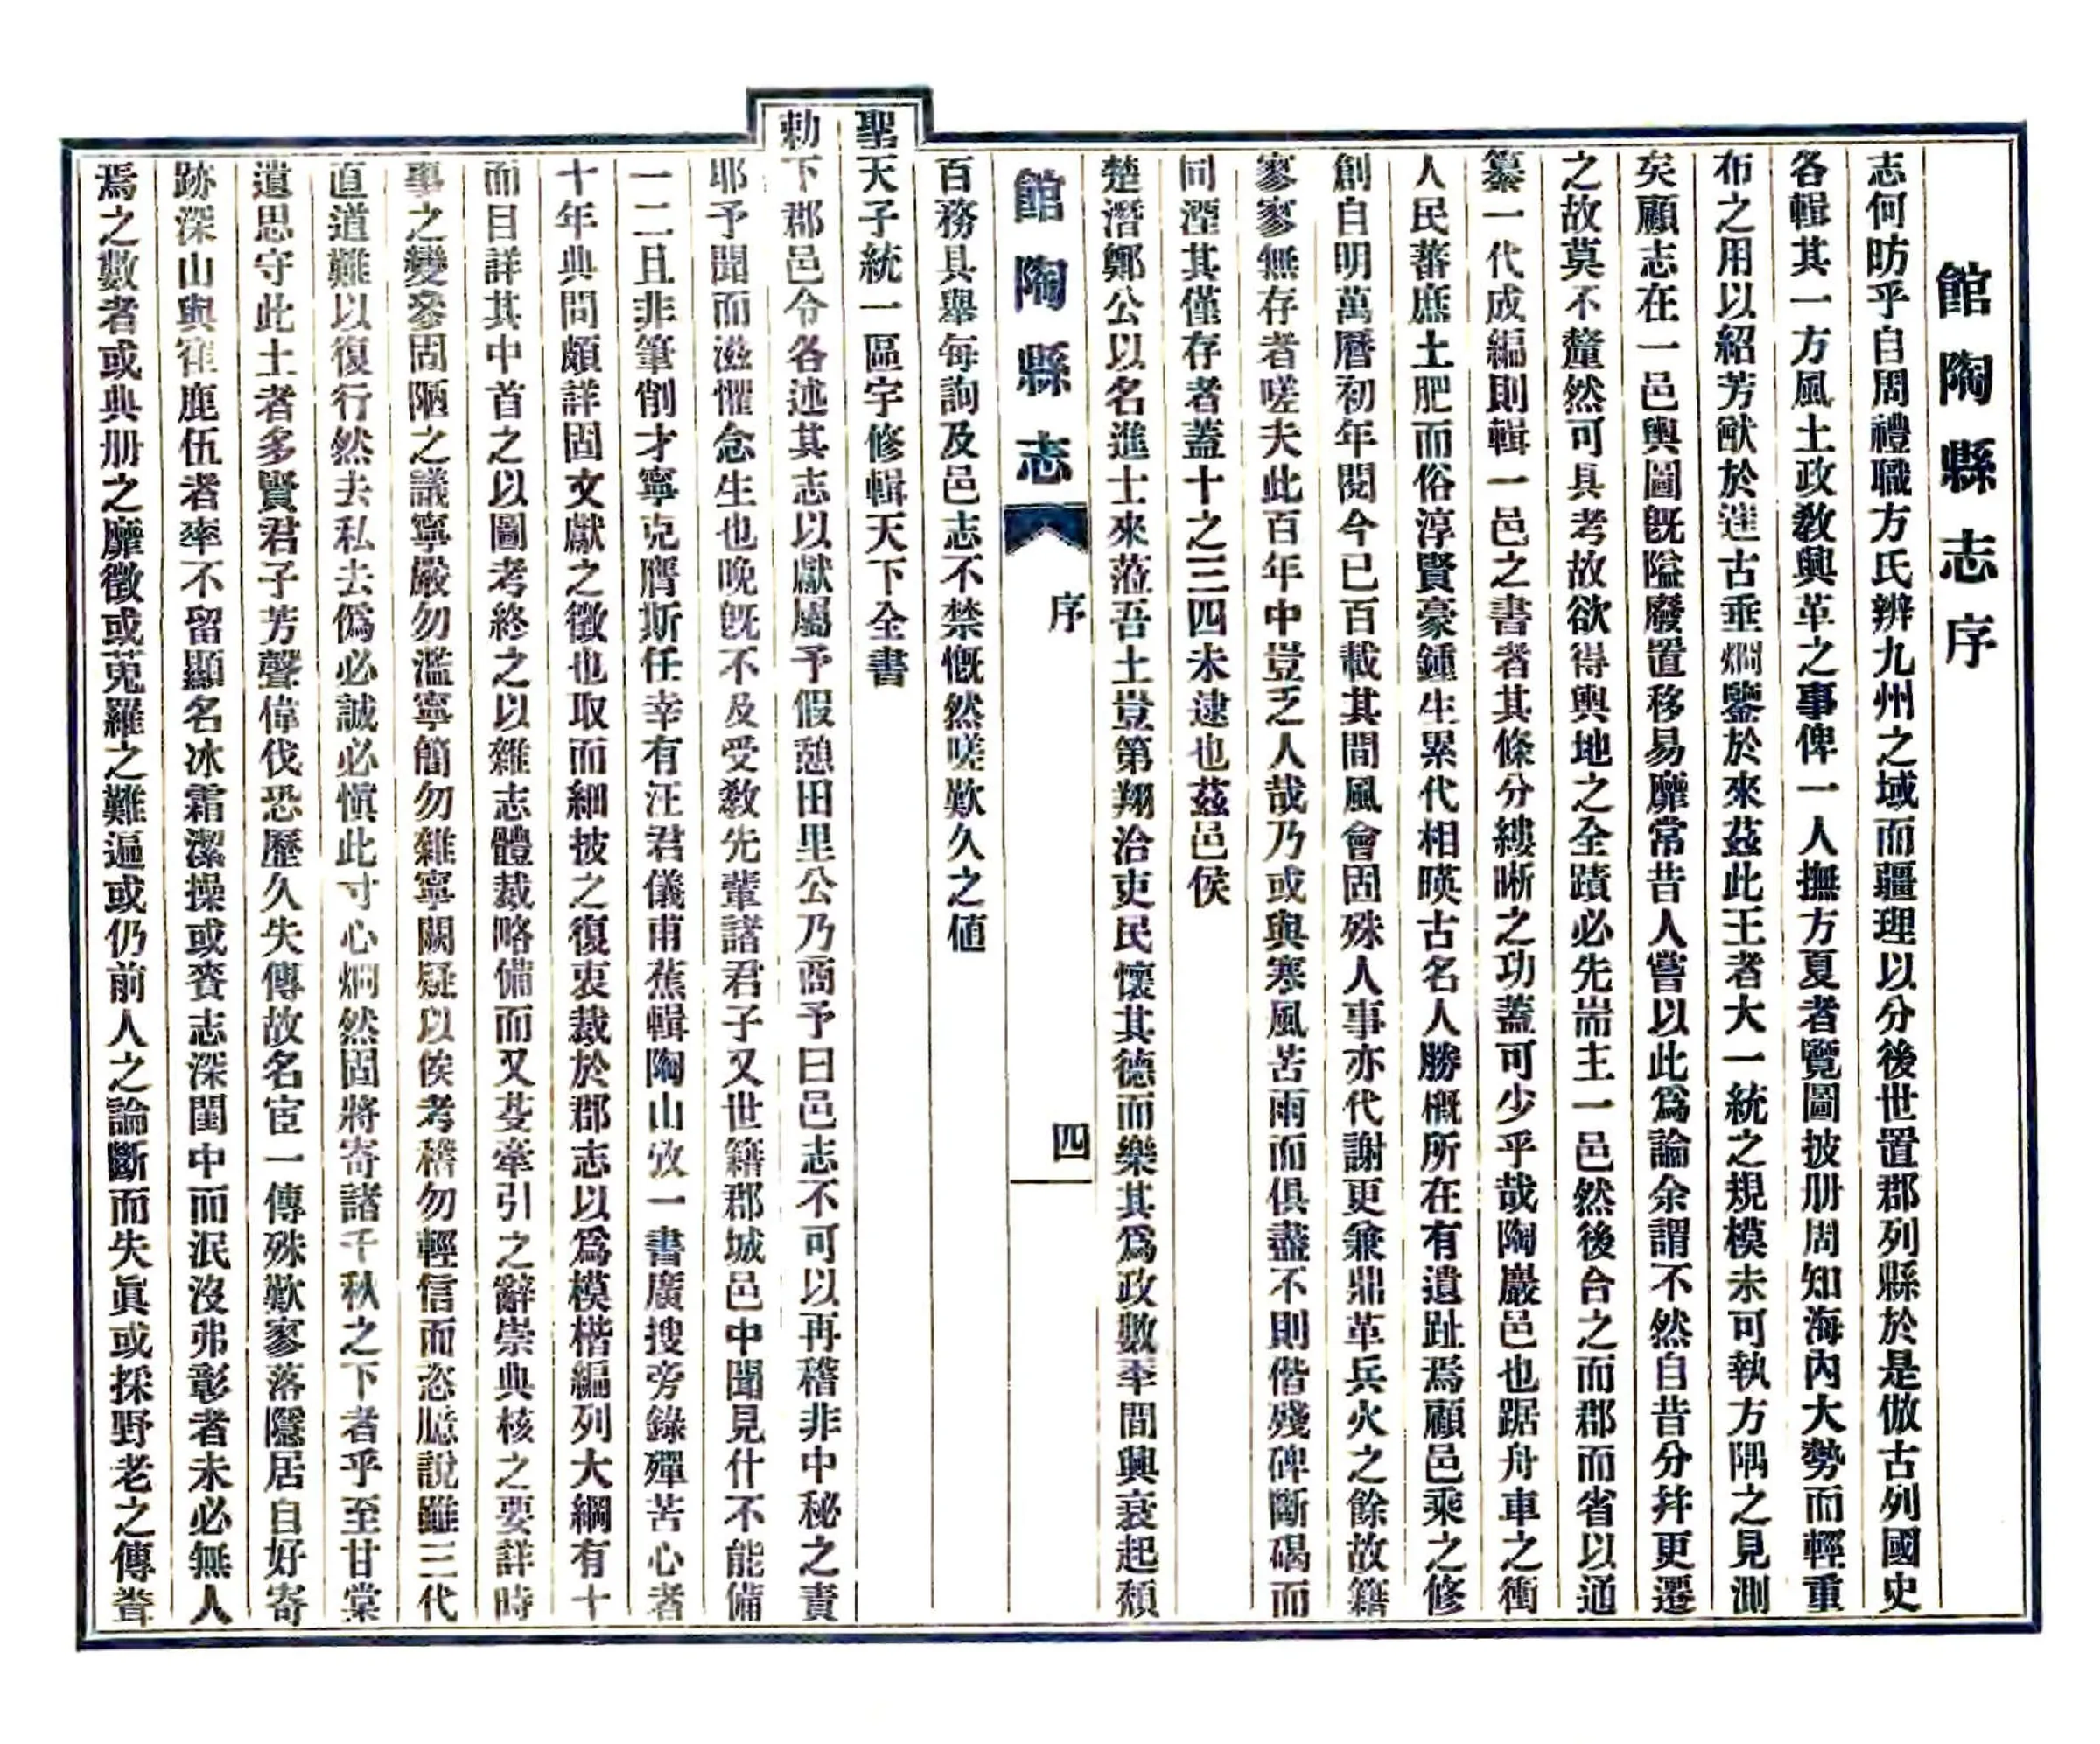 館陶縣志序
志何昉乎自周禮職方氏辨九州之域而疆理以分後世置郡列縣於是倣古列國史
各輯其一方風土政敎興革之事俾一人撫方夏者覽圖披册周知海內大勢而輕重
布之用以紹芳猷於往古垂烱鑒於來茲此王者大一統之規模未可執方隅之見測
矣顧志在一邑輿圖旣隘廢置移易靡常昔人嘗以此爲論余謂不然自昔分幷更遷
之故莫不釐然可具考故欲得輿地之全蹟必先耑主一邑然後合之而郡而省以通
纂一代成編則輯一邑之書者其條分縷晰之功蓋可少乎哉陶巖邑也踞舟車之衝
人民蕃庶土肥而俗淳賢豪鍾生累代相暎古名人勝槪所在有遺趾焉顧邑乘之修
創自明萬曆初年閱今已百載其間風會固殊人事亦代謝更兼鼎革兵火之餘故籍
寥寥無存者嗟夫此百年中豈乏人哉乃或與寒風苦雨而俱盡不則偕殘碑斷碣而
同湮其僅存者蓋十之三四未逮也茲邑侯
楚潛鄭公以名進士來蒞吾土豈第翔洽吏民懷其德而樂其爲政數年間興衰起頹
館陶縣志
序
四
百務具舉每詢及邑志不禁慨然嗟歎久之値
聖天子統一區宇修輯天下全書
勅下郡邑令各述其志以獻屬予假憩田里公乃商予曰邑志不可以再稽非中秘之責
耶予聞而滋懼念生也晚旣不及受敎先輩諸君子又世籍郡城邑中聞見什不能備
一二且非筆削才寧克膺斯任幸有汪君儀甫蕉輯陶山攷一書廣搜旁錄殫苦心者
十年典問頗詳固文獻之徵也取而細披之復衷裁於郡志以爲模楷編列大綱有十
而目詳其中首之以圖考終之以雜志體裁略備而又芟牽引之辭崇典核之要詳時
事之變參固陋之議寧嚴勿濫寧簡勿雜寧闕疑以俟考稽勿輕信而恣臆說雖三代
直道難以復行然去私去僞必誠必愼此寸心烱然固將寄諸千秋之下者乎至甘棠
遺思守此土者多賢君子芳聲偉伐恐歷久失傳故名宦一傳殊歎寥落隱居自好寄
跡深山與寉鹿伍者率不留顯名冰霜潔操或賫志深閨中而泯沒弗彰者未必無人
焉之數者或典册之靡徵或蒐羅之難遍或仍前人之論斷而失眞或採野老之傳聳